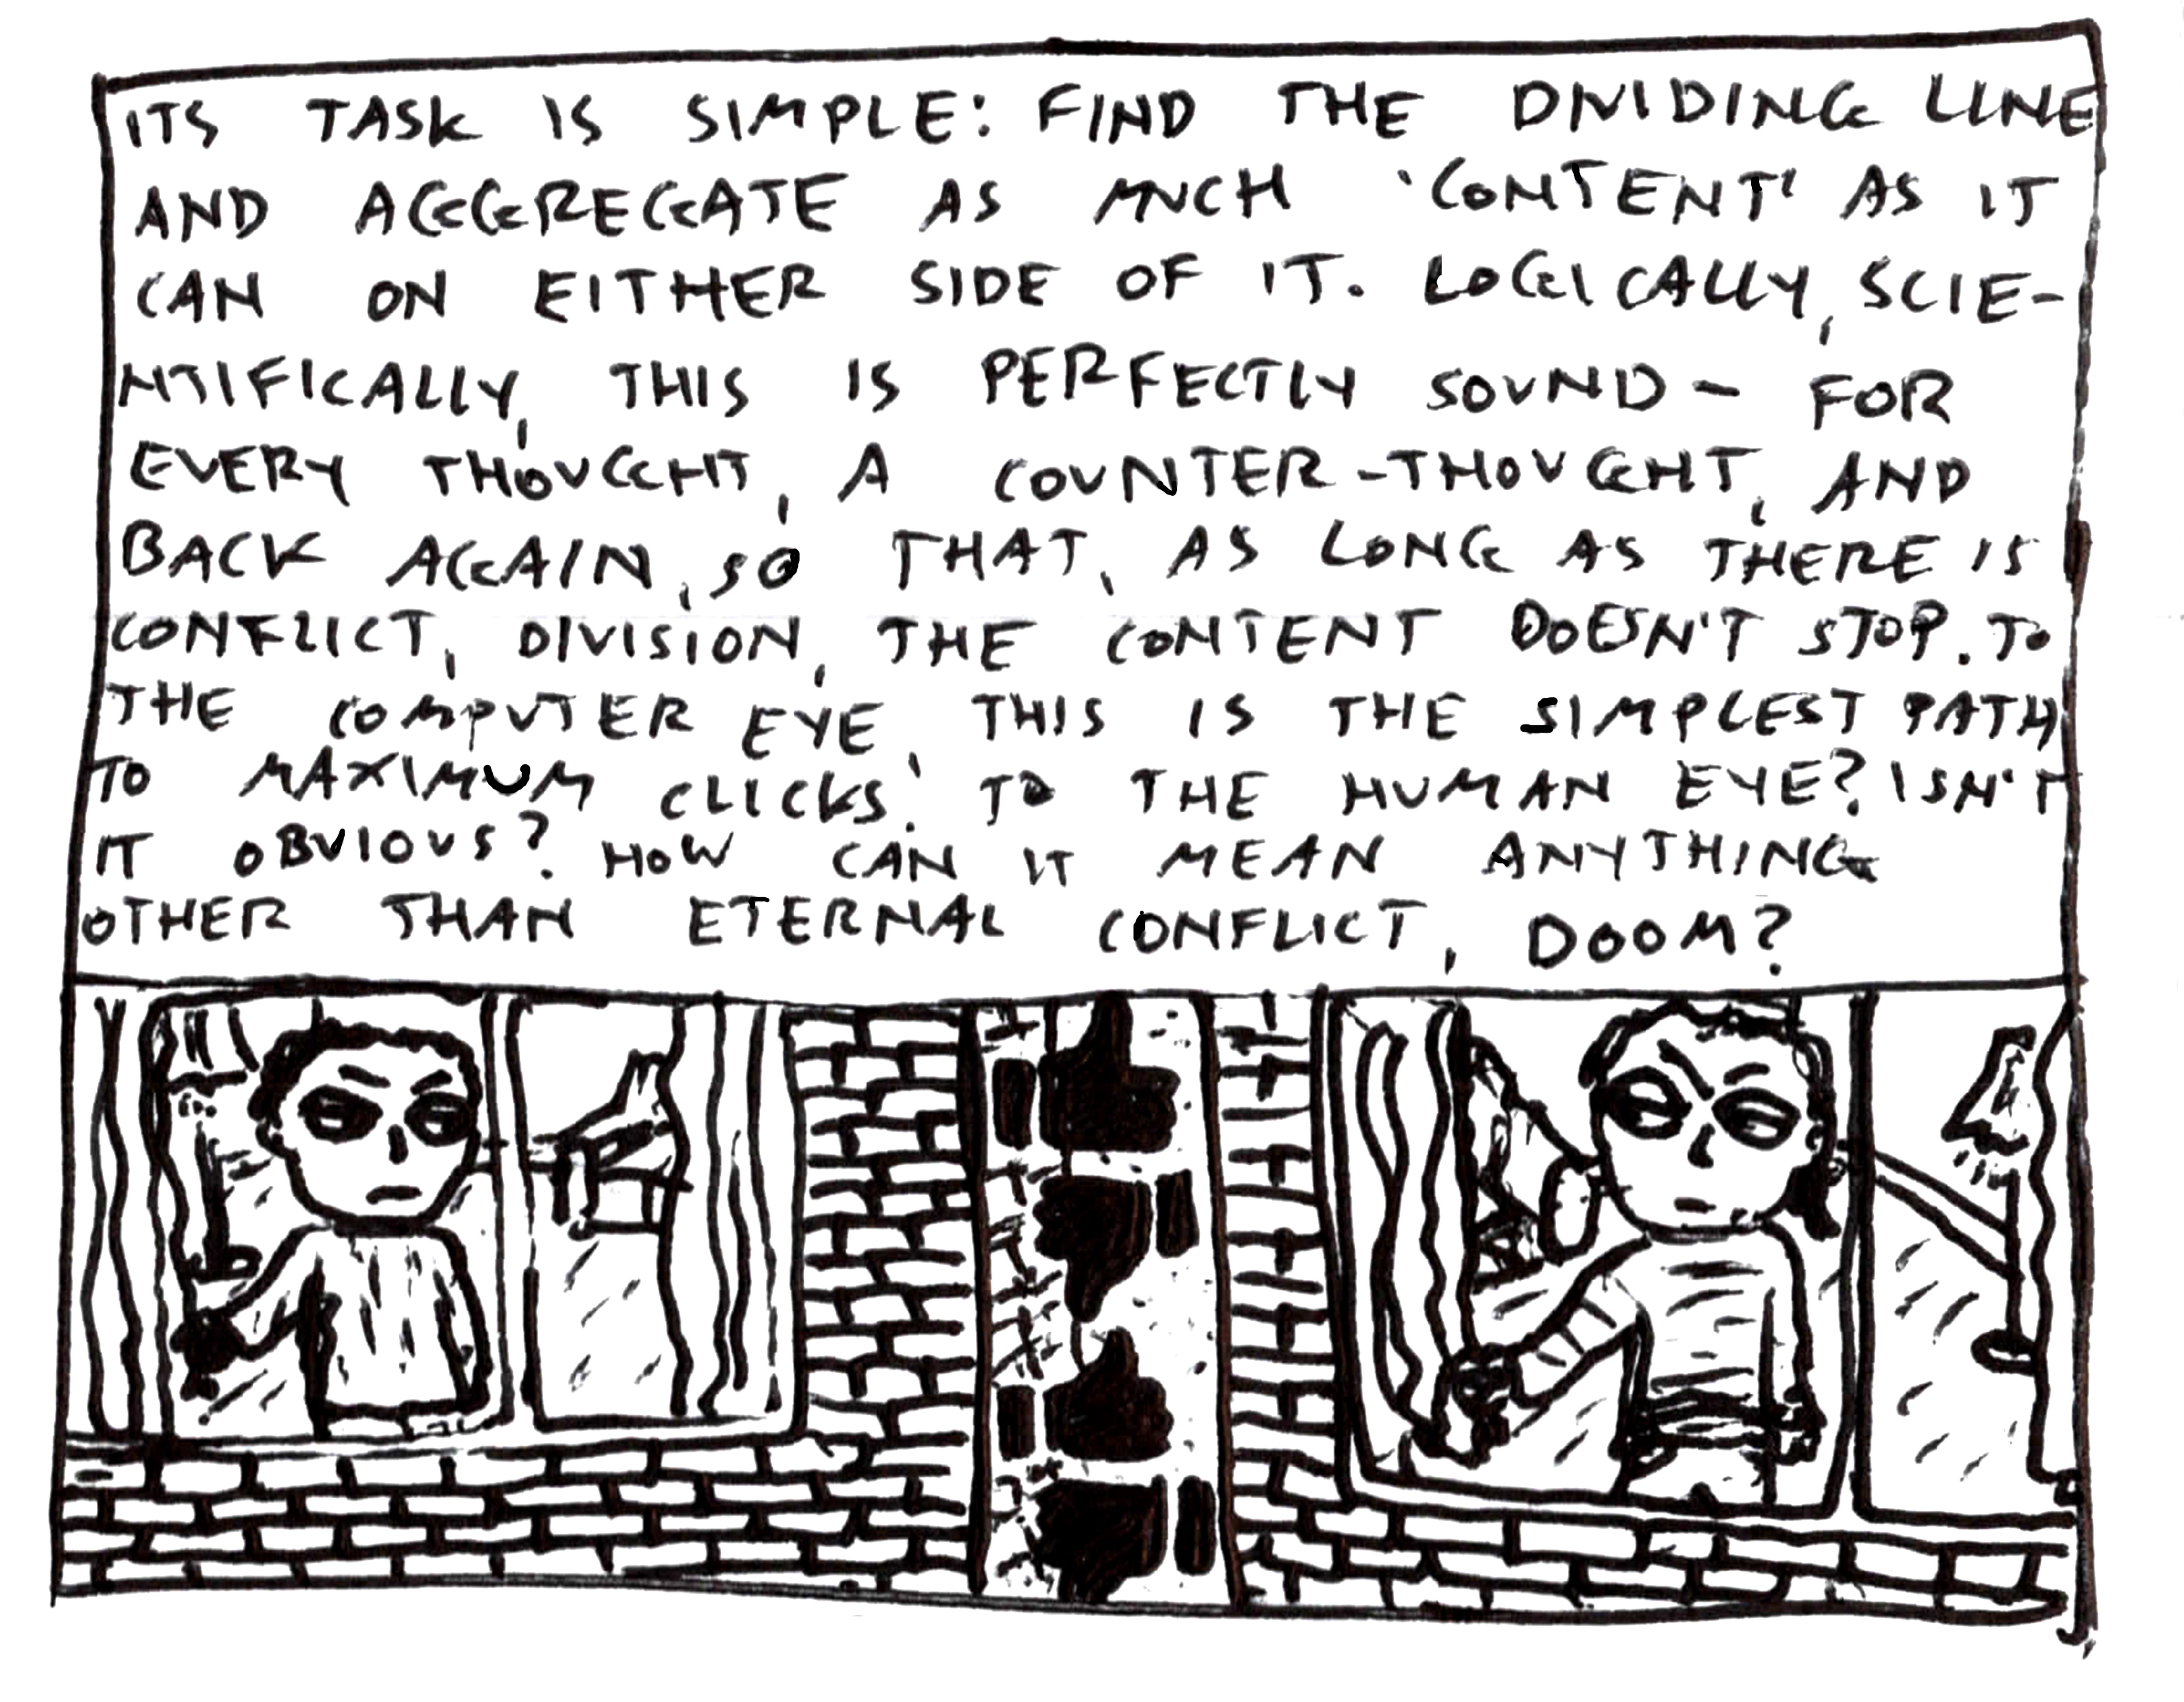 ITS TASK IS SIMPLE: FIND THE DIVIDING LINE
AND AGGREGATE AS MUCH 'CONTENT' AS IT
CAN ON EITHER SIDE OF IT. LOGICALLY, SCIE-
NTIFICALLY, THIS IS PERFECTLY SOUND - FOR
EVERY THOUGHT, A COUNTER-THOUGHT, AND
BACK AGAIN, SO THAT, AS LONG AS THERE IS
CONFLICT, DIVISION, THE CONTENT DOESN'T STOP. TO
THE COMPUTER EYE, THIS IS THE SIMPLEST PATH
TO MAXIMUM CLICKS. TO THE HUMAN EYE? ISN'T
IT OBVIOUS? HOW CAN IT MEAN ANYTHING
OTHER THAN ETERNAL CONFLICT, DOOM?